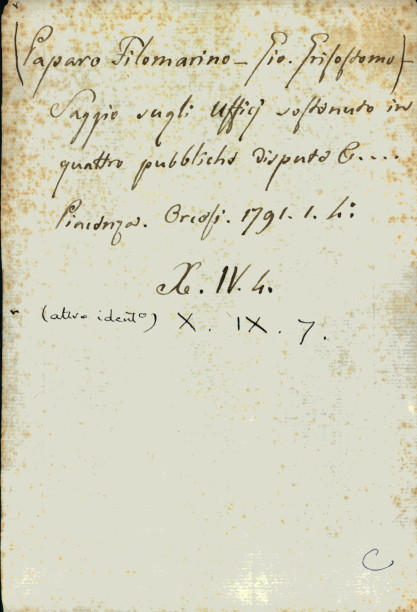 (Paparo Filomarino - Gio. Grisostomo) -
Saggio sugli Uffici sostenuto in
quattro pubbliche dispute &....
Piacenza. Orcesi. 1791. 1. 4:
X. IV. 4.
(altro ident°) X. IX. 7.
C